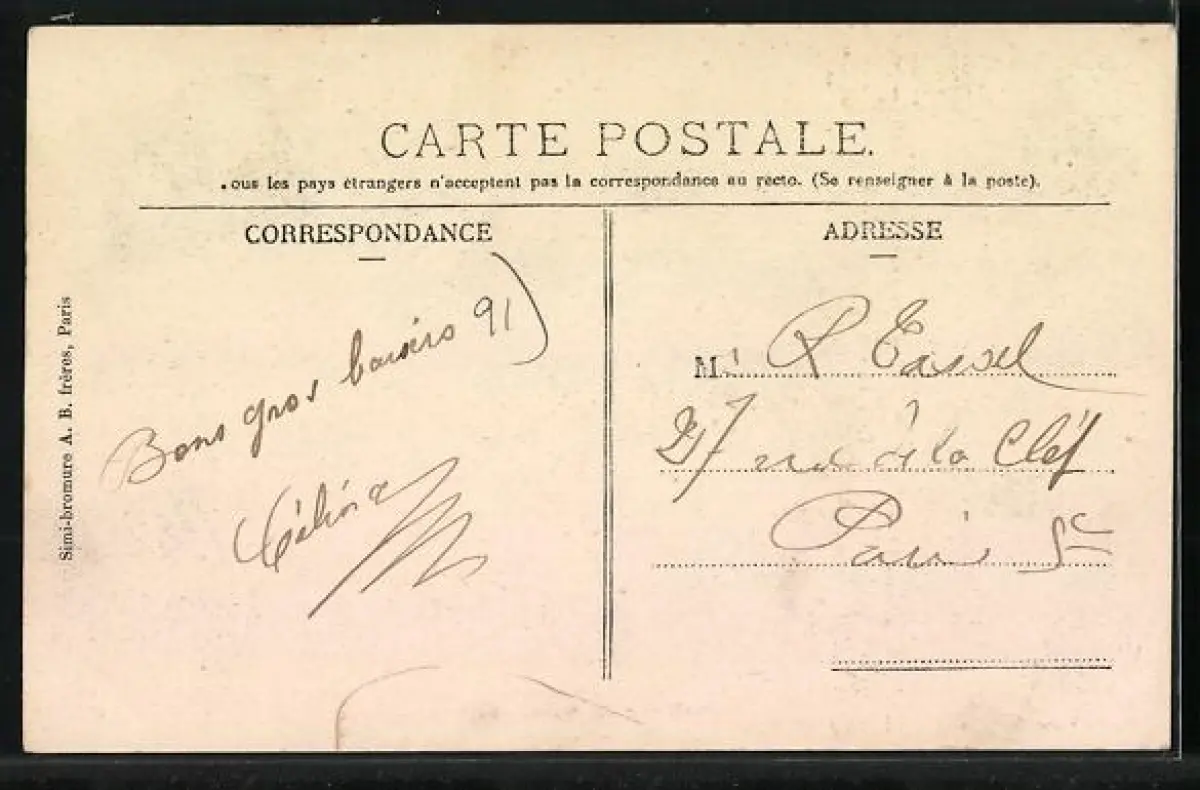 CARTE POSTALE.
.ous les pays étrangers n'acceptent pas la correspondance au recto. (Se renseigner à la poste).
CORRESPONDANCE
ADRESSE
Bons gros baisers 91
M R Tassel
27 rue de la Clef
Paris 5e
Simi-bromure A. B. frères, Paris